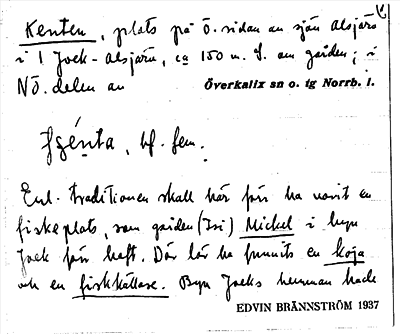 Kenten, plats på Ö. sidan av sjön Alsjärv
i l Jock-Alsjärv, ca 150 m. S. om gården; i
NÖ. delen av Överkalix sn o. tg Norrb. l.
bf. fem.
Enl. traditionen skall här förr ha varit en
fiskeplats, som gården (Isi) Mickel i byn
Jock förr haft. Där lär ha funnits en koja
och en fiskkällare. Byn Jocks hade
EDVIN BRÄNNSTRÖM 1937